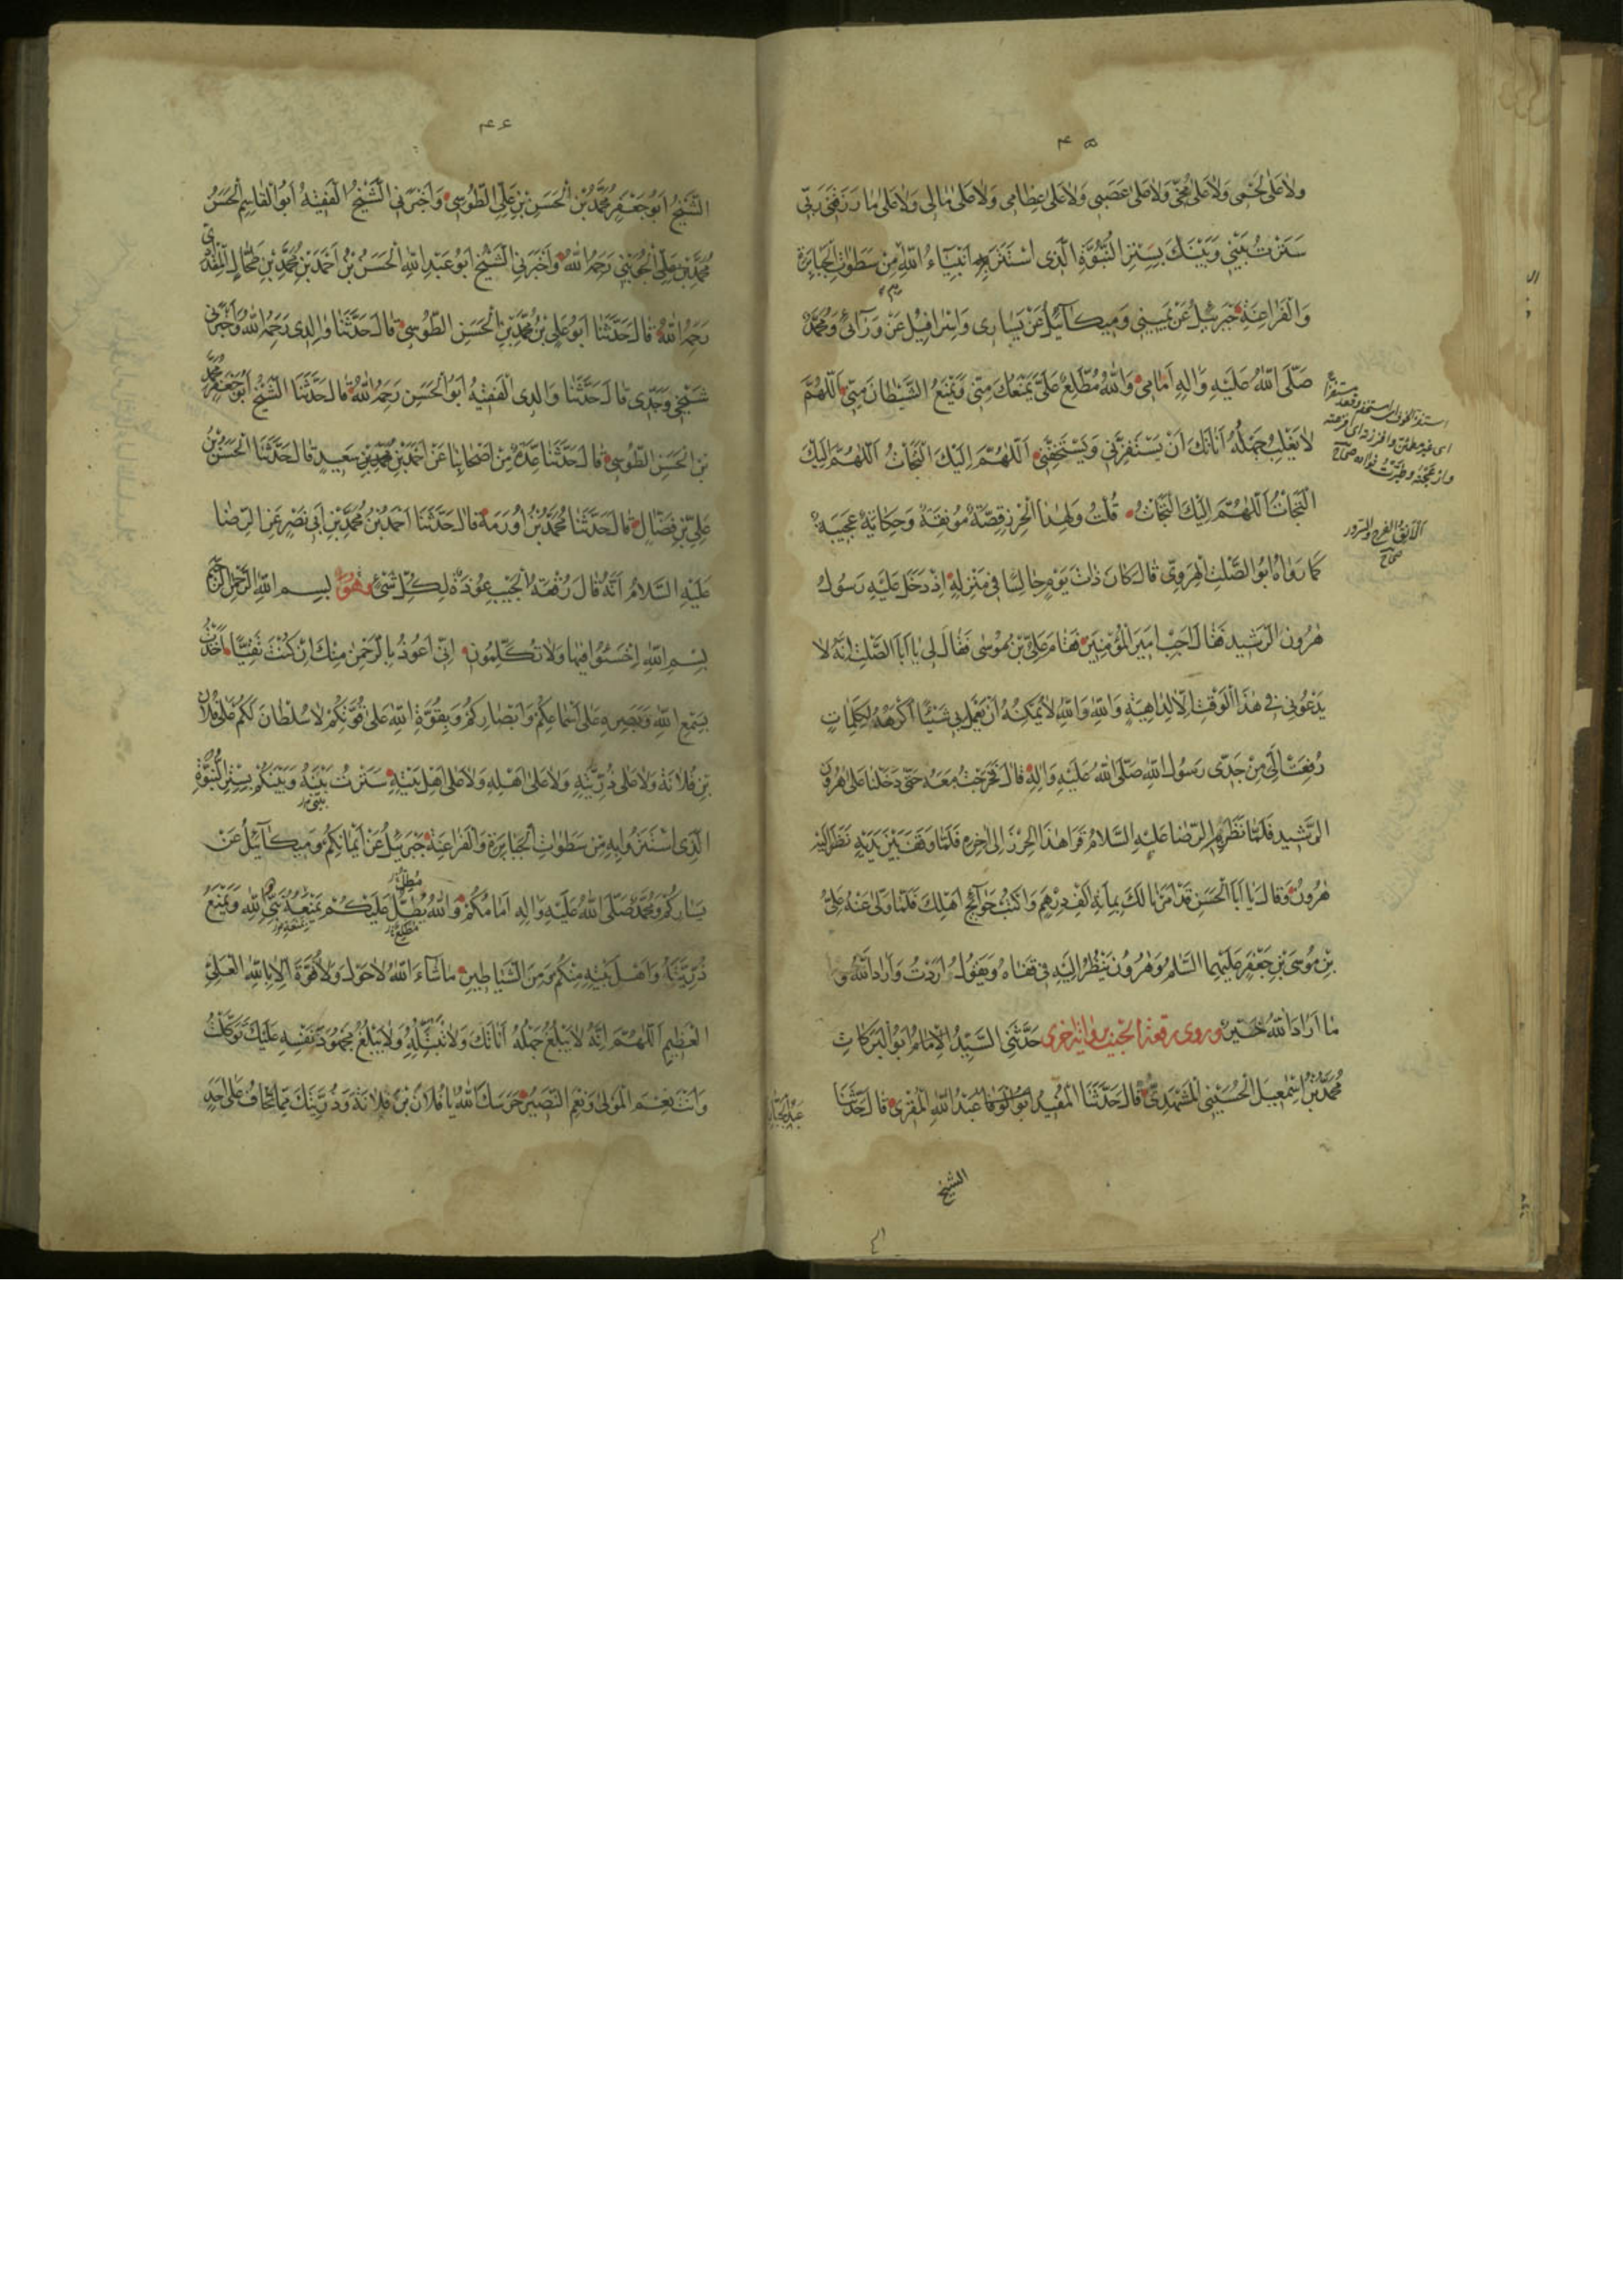 ۴۵
ولا على لحمى ولا على مخى ولا على عصبى ولا على عظامى ولا على مالى ولا على ما رزقنى ربى
سترت بينى وبينك بستر النبوة الذى استتر به انبياء الله من سطوات الجبابرة
والفراعنة جبرئيل عن يمينى وميكآئيل عن يسارى واسرافيل عن ورآئى ومحمد
صلى الله عليه واله امامى والله مطلع على يمنعك منى ويمنع الشيطان منى اللهم
لا يغلب جهله اناتك ان يستفزنى ويستخفنى اللهم اليك التجات اللهم اليك
التجات اللهم اليك التجات قلت ولهذا الحرز قصة مونقة وحكاية عجيبة
كما رواه ابو الصلت الهروى قال كان ذات يوم جالسا فى منزله اذ دخل عليه رسول
هرون الرشيد فقال اجب امير المؤمنين فقام على بن موسى فقال لى يا ابا الصلت انه لا
يدعونى فى هذا الوقت الا لداهية والله والله لا يمكنه ان يعمل بى شيئا اكرهه لكلمات
رفعت الى من جدى رسول الله صلى الله عليه واله قال فخرجت معه حتى دخلنا على هرون
الرشيد فلما نظر به الرضا عليه السلام قرا هذا الحرز الى اخره فلما وقف بين يديه نظر اليه
هرون وقال يا ابا الحسن قد امرنا لك بمائة الف درهم واكتب حوآئج اهلك فلما ولى عنه على
بن موسى بن جعفر عليهما السلام وهرون ينظر اليه فى قفاه ويقول اردت واراد الله و
ما اراد الله خير وروى رقعة الجيب برواية اخرى حدثنى السيد الامام ابو البركات
محمد بن اسمعيل الحسينى المشهدى قال حدثنا المفيد ابو الوفا عبد الله المقرى قال حدثنا
عبد الجبار
الشيخ
الانق الفرح والسرور
صحاح
۴۶
الشيخ ابو جعفر محمد بن الحسن بن على الطوسى واخبرنى الشيخ الفقيه ابو القاسم الحسن
محمد بن على الجوينى رحمه الله واخبرنى الشيخ ابو عبد الله الحسن بن احمد بن محمد بن طحال المقدادى
رحمه الله قال حدثنا ابو على بن محمد بن الحسن الطوسى قال حدثنا والدى رحمه الله واخبرنى
شيخى وجدى قال حدثنا والدى الفقيه ابو الحسن رحمه الله قال حدثنا الشيخ ابو جعفر محمد
بن الحسن الطوسى قال حدثنا عدة من اصحابنا عن احمد بن محمد بن سعيد قال حدثنا الحسن بن
على بن فضال قال حدثنا محمد بن اورمة قال حدثنا احمد بن محمد بن ابى نصر عن الرضا
عليه السلام انه قال رقعة الجيب عوذة لكل شئ وهو بسم الله الرحمن الرحيم
بسم الله اخسئوا فيها ولا تكلمون انى اعوذ بالرحمن منك ان كنت تقيا اخذت
بسمع الله وبصره على اسماعكم وابصاركم وبقوة الله على قوتكم لا سلطان لكم على فلان
بن فلانة ولا على ذريته ولا على اهله ولا على اهل بيته سترت بينه وبينكم بستر النبوة
الذى استتروا به من سطوات الجبابرة والفراعنة جبرئيل عن ايمانكم وميكآئيل عن
يساركم ومحمد صلى الله عليه واله امامكم والله يطل عليكم يمنعه نبى الله ويمنع
ذريته واهل بيته منكم ومن الشياطين ما شآء الله لا حول ولا قوة الا بالله العلى
العظيم اللهم انه لا يبلغ جهله اناتك ولا تبتله ولا يبلغ مجهود نفسه عليك توكلت
وانت نعم المولى ونعم النصير حرسك الله يا فلان بن فلانة وذريتك مما تخاف على احد